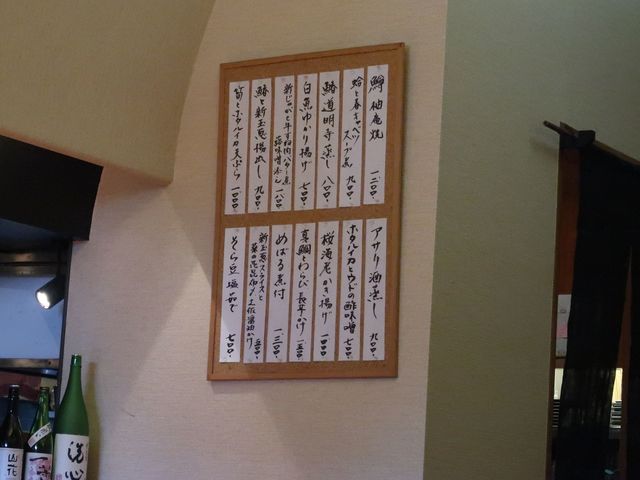 鱒柚庵焼 一二〇〇.
蛤と春キャベツスープ煮 九〇〇.
鰆道明寺蒸し 八〇〇.
白魚ゆかり揚げ 七〇〇.
新じゃがと牛すね肉バター煮
一八〇〇.
鰆と新玉葱揚出し 九〇〇.
筍とホタルイカ天ぷら 一〇〇〇.
アサリ酒蒸し 九〇〇.
ホタルイカとウドの酢味噌 七〇〇.
桜海老かき揚げ 一〇〇〇.
真鯛とわらび 長芋かけ 一五〇〇.
めばる煮付 一三〇〇.
新玉葱スライスと
菜の花昆布〆土佐醤油かけ 五〇〇.
そら豆 塩茹で 七〇〇.
山花
洗心